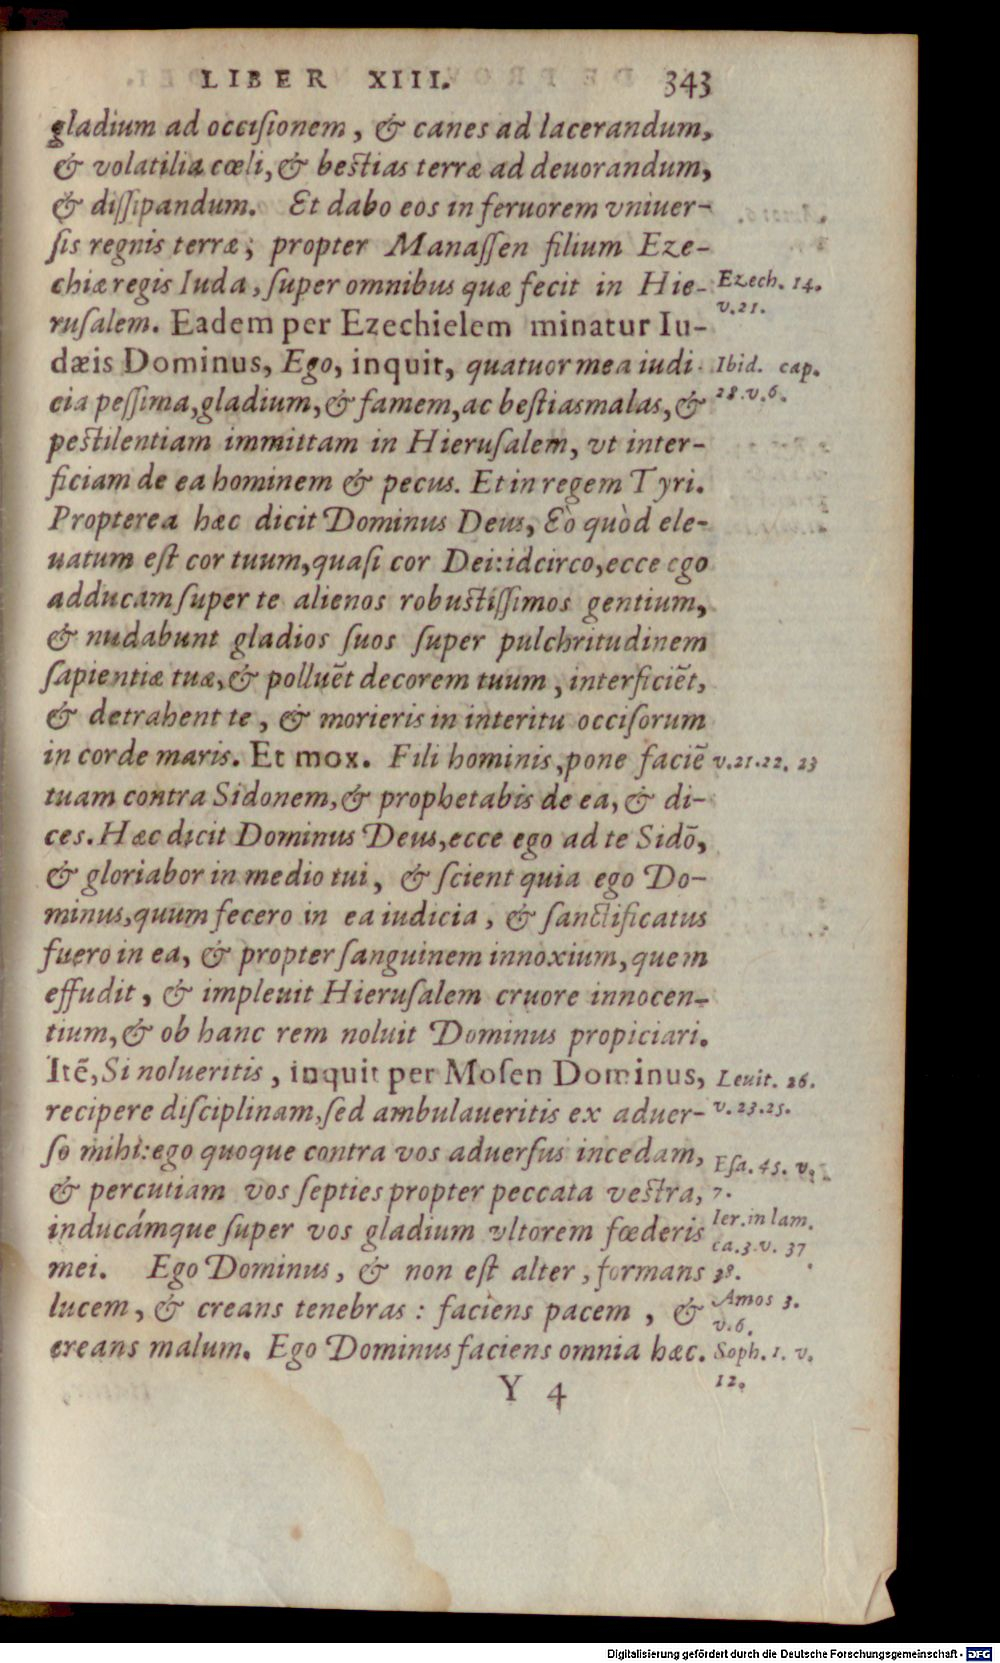 LIBER XIII. 343
gladium ad occiſionem, & canes ad lacerandum,
& volatilia cœli, & beſtias terræ ad deuorandum,
& diſſipandum. Et dabo eos in feruorem vniuer-
ſis regnis terræ; propter Manaſſen filium Eze-
chiæ regis Iuda, ſuper omnibus quæ fecit in Hie-
ruſalem. Eadem per Ezechielem minatur Iu-
dæis Dominus, Ego, inquit, quatuor mea iudi-
cia peſſima, gladium, & famem, ac beſtias malas, &
peſtilentiam immittam in Hieruſalem, vt inter-
ficiam de ea hominem & pecus. Et in regem Tyri.
Propterea hæc dicit Dominus Deus, Eò quòd ele-
uatum eſt cor tuum, quaſi cor Dei: idcirco, ecce ego
adducam ſuper te alienos robuſtiſſimos gentium,
& nudabunt gladios ſuos ſuper pulchritudinem
ſapientiæ tuæ, & polluẽt decorem tuum, interficiẽt,
& detrahent te, & morieris in interitu occiſorum
in corde maris. Et mox. Fili hominis, pone faciẽ
tuam contra Sidonem, & prophetabis de ea, & di-
ces. Hæc dicit Dominus Deus, ecce ego ad te Sidõ,
& gloriabor in medio tui, & ſcient quia ego Do-
minus, quum fecero in ea iudicia, & ſanctificatus
fuero in ea, & propter ſanguinem innoxium, quem
effudit, & impleuit Hieruſalem cruore innocen-
tium, & ob hanc rem noluit Dominus propiciari.
Itẽ, Si nolueritis, inquit per Moſen Dominus,
recipere diſciplinam, ſed ambulaueritis ex aduer-
ſo mihi: ego quoque contra vos aduerſus incedam,
& percutiam vos ſepties propter peccata veſtra,
inducámque ſuper vos gladium vltorem fœderis
mei. Ego Dominus, & non eſt alter, formans
lucem, & creans tenebras: faciens pacem, &
creans malum. Ego Dominus faciens omnia hæc.
Y 4
Ezech. 14.
v.21.
Ibid. cap.
28.v.6.
v.21.22. 23
Leuit. 26.
v. 23.25.
Eſa. 45. v.
7.
Ier. in lam.
ca.3.v. 37
38.
Amos 3.
v.6.
Soph. 1. v.
12.
Digitalisierung gefördert durch die Deutsche Forschungsgemeinschaft - DFG